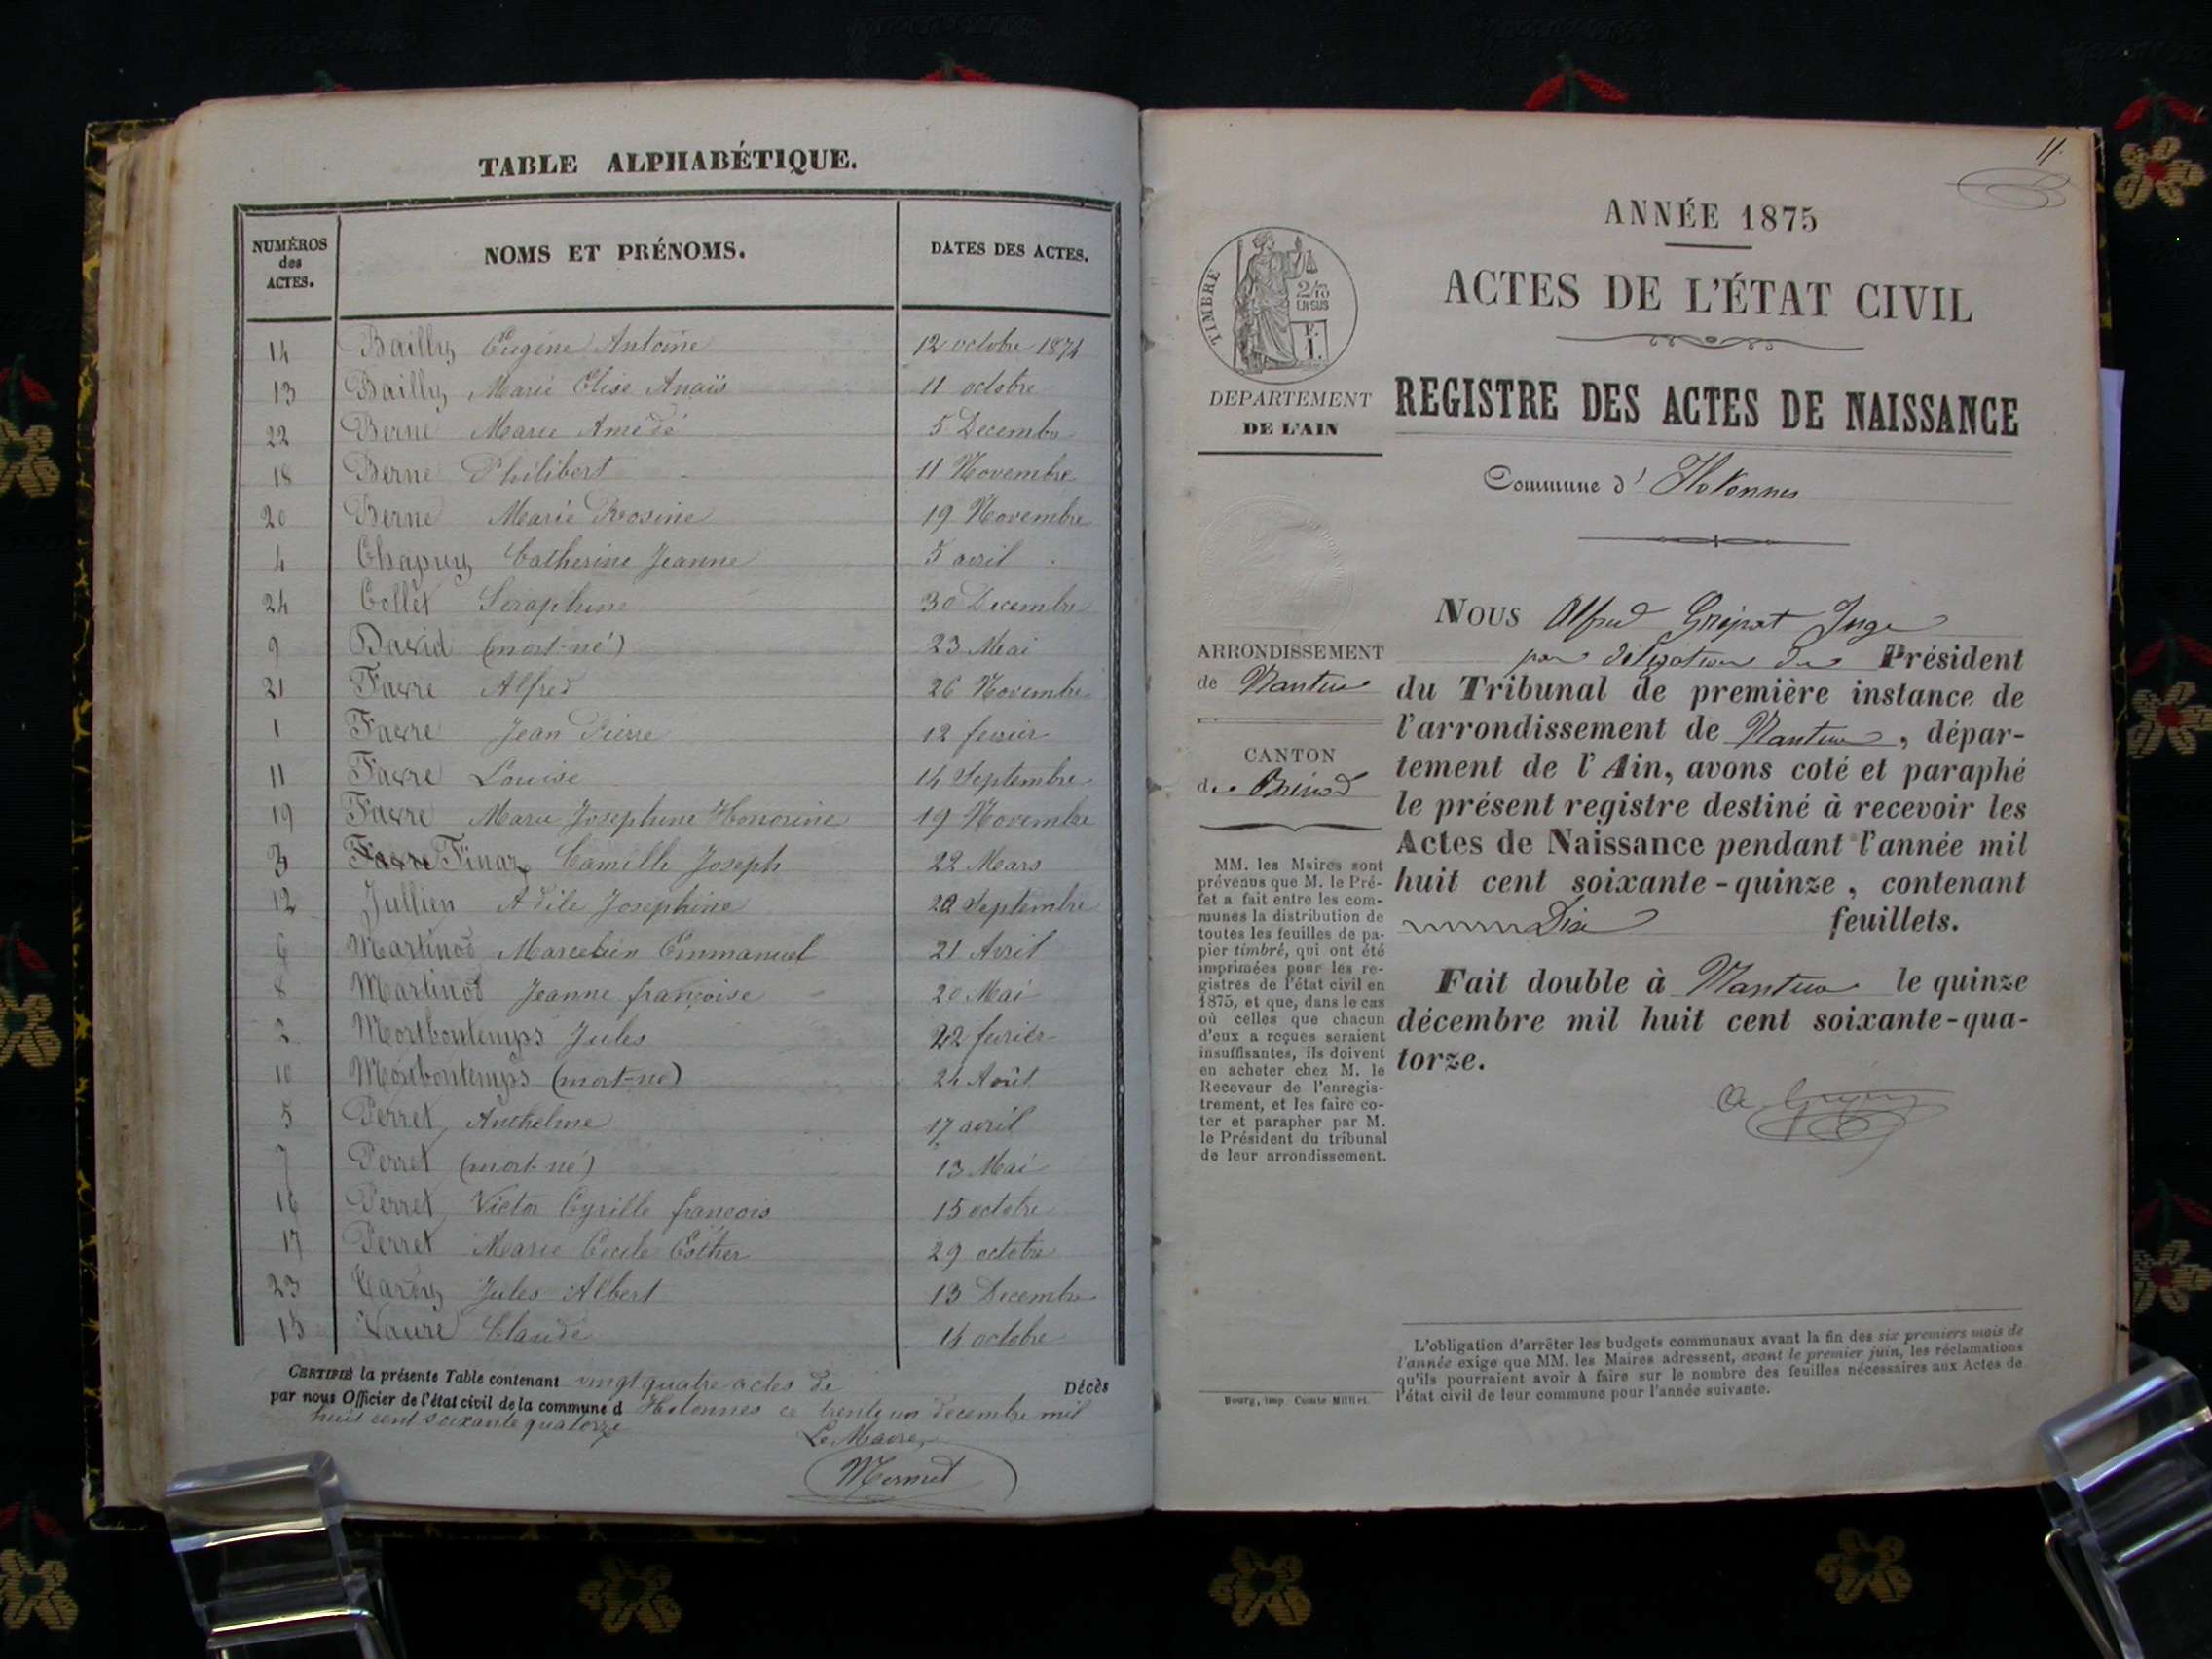 TABLE ALPHABÉTIQUE.
NUMÉROS des ACTES. NOMS ET PRÉNOMS. DATES DES ACTES.
14 Bailly Eugène Antoine 12 octobre 1874
13 Bailly Marie Elise Anaïs 11 octobre
22 Berne Marie Amédé 5 Decembre
18 Berne Philibert 11 Novembre
20 Berne Marie Rosine 19 Novembre
4 Chapuy Catherine Jeanne 5 avril
24 Collet Seraphine 30 Decembre
9 David (mort-né) 23 Mai
21 Favre Alfred 26 Novembre
1 Favre Jean Pierre 12 fevrier
11 Favre Louise 14 Septembre
19 Favre Marie Josephine Honorine 19 Novembre
3 Favre Finaz Camille Joseph 22 Mars
12 Jullien Adile Josephine 20 Septembre
6 Martinod Marcelin Emmanuel 21 Avril
8 Martinod Jeanne françoise 20 Mai
2 Montbontemps Jules 22 fevrier
10 Montbontemps (mort-né) 24 Août
5 Perret Anthelme 17 avril
7 Perret (mort-né) 13 Mai
16 Perret Victor Cyrille françois 15 octobre
17 Perret Marie Cecile Esther 29 octobre
23 Jules Albert 13 Decembre
15 Claude 14 octobre
CERTIFIÉ la présente Table contenant vingt quatre actes de Décès
par nous Officier de l'état civil de la commune d Hotonnes ce trente un decembre mil
huit cent soixante quatorze
Le Maire,
Mermet
11.
ANNÉE 1875
ACTES DE L'ÉTAT CIVIL
REGISTRE DES ACTES DE NAISSANCE
Commune d' Hotonnes
TIMBRE
2/10
EN SUS
F.
1.
DÉPARTEMENT
DE L'AIN
ARRONDISSEMENT
de Nantua
CANTON
de Brénod
MM. les Maires sont
prévenus que M. le Pré-
fet a fait entre les com-
munes la distribution de
toutes les feuilles de pa-
pier timbré, qui ont été
imprimées pour les re-
gistres de l'état civil en
1875, et que, dans le cas
où celles que chacun
d'eux a reçues seraient
insuffisantes, ils doivent
en acheter chez M. le
Receveur de l'enregis-
trement, et les faire co-
ter et parapher par M.
le Président du tribunal
de leur arrondissement.
Bourg, imp. Comte Milliet.
NOUS Alfred Grépat Juge
par délégation du Président
du Tribunal de première instance de
l'arrondissement de Nantua, dépar-
tement de l'Ain, avons coté et paraphé
le présent registre destiné à recevoir les
Actes de Naissance pendant l'année mil
huit cent soixante-quinze, contenant
Dix feuillets.
Fait double à Nantua le quinze
décembre mil huit cent soixante-qua-
torze.
L'obligation d'arrêter les budgets communaux avant la fin des six premiers mois de
l'année exige que MM. les Maires adressent, avant le premier juin, les réclamations
qu'ils pourraient avoir à faire sur le nombre des feuilles nécessaires aux Actes de
l'état civil de leur commune pour l'année suivante.